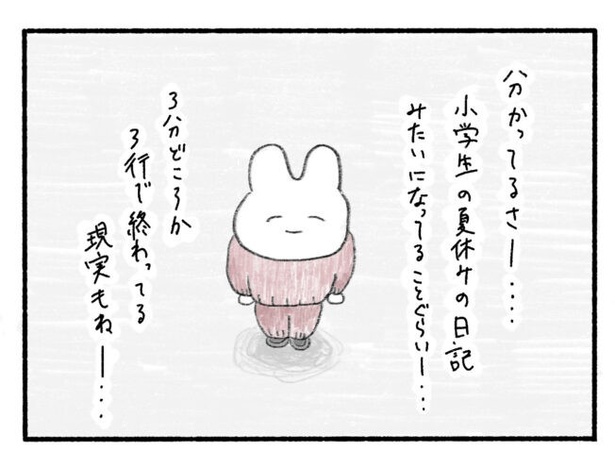 分かってるさー‥‥
小学生の夏休みの日記
みたいになってることぐらいー‥‥
3分どころか
3行で終わってる
現実もねー‥‥